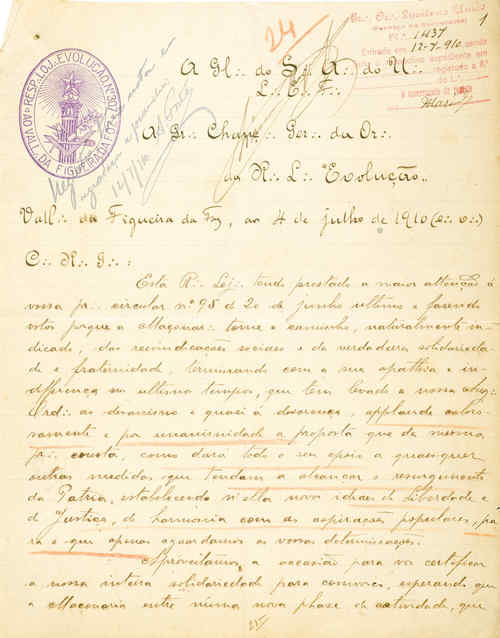 24
1
Nº 1437
Entrado em 12-7-910
AUG∴ RESP∴ LOJ∴ EVOLUÇÃO Nº 307
VALL∴ DA FIGUEIRA DA FOZ
12/7/910
A Gl∴ do S∴ A∴ do U∴
L∴ E∴ F∴
A Gr∴ Chanc∴ Ger∴ da Or∴
da R∴ L∴ "Evolução"
Vall∴ da Figueira da Foz, ao 4 de julho de 1910 (e∴ v∴)
C∴ R∴ G∴ :
Esta R∴ Loj∴ tendo prestado a maior attenção á
vossa pr∴ circular nº 98 de 20 de junho ultimo e fazendo
votos porque a Maçonar∴ tome o caminho, naturalmente in-
dicado, das reivindicações sociaes e da verdadeira solidarieda-
de e fraternidade, terminando com a sua apathia e in-
differença nos ultimos tempos, que tem levado a nossa Aug∴
Ord∴ ao desanimo e quasi á descrença, applaude caloro-
samente e por unanimidade a proposta que da mesma
pr∴ consta, como dará todo o seu apoio a quaesquer
outras medidas que tendam a alcançar o resurgimento
da Patria, estabelecendo n'ella novas ideias de Liberdade e
de Justiça, de harmonia com as aspirações populares, pa-
ra o que apenas aguardamos as vossas determinações.
Aproveitamos a occasião para vos certificar
a nossa inteira solidariedade para comvosco, esperando que
a Maçonaria entre n'uma nova phase de actividade, que